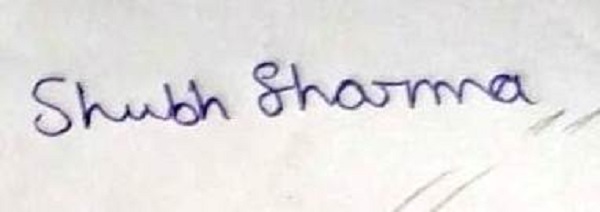 Shubh Sharma